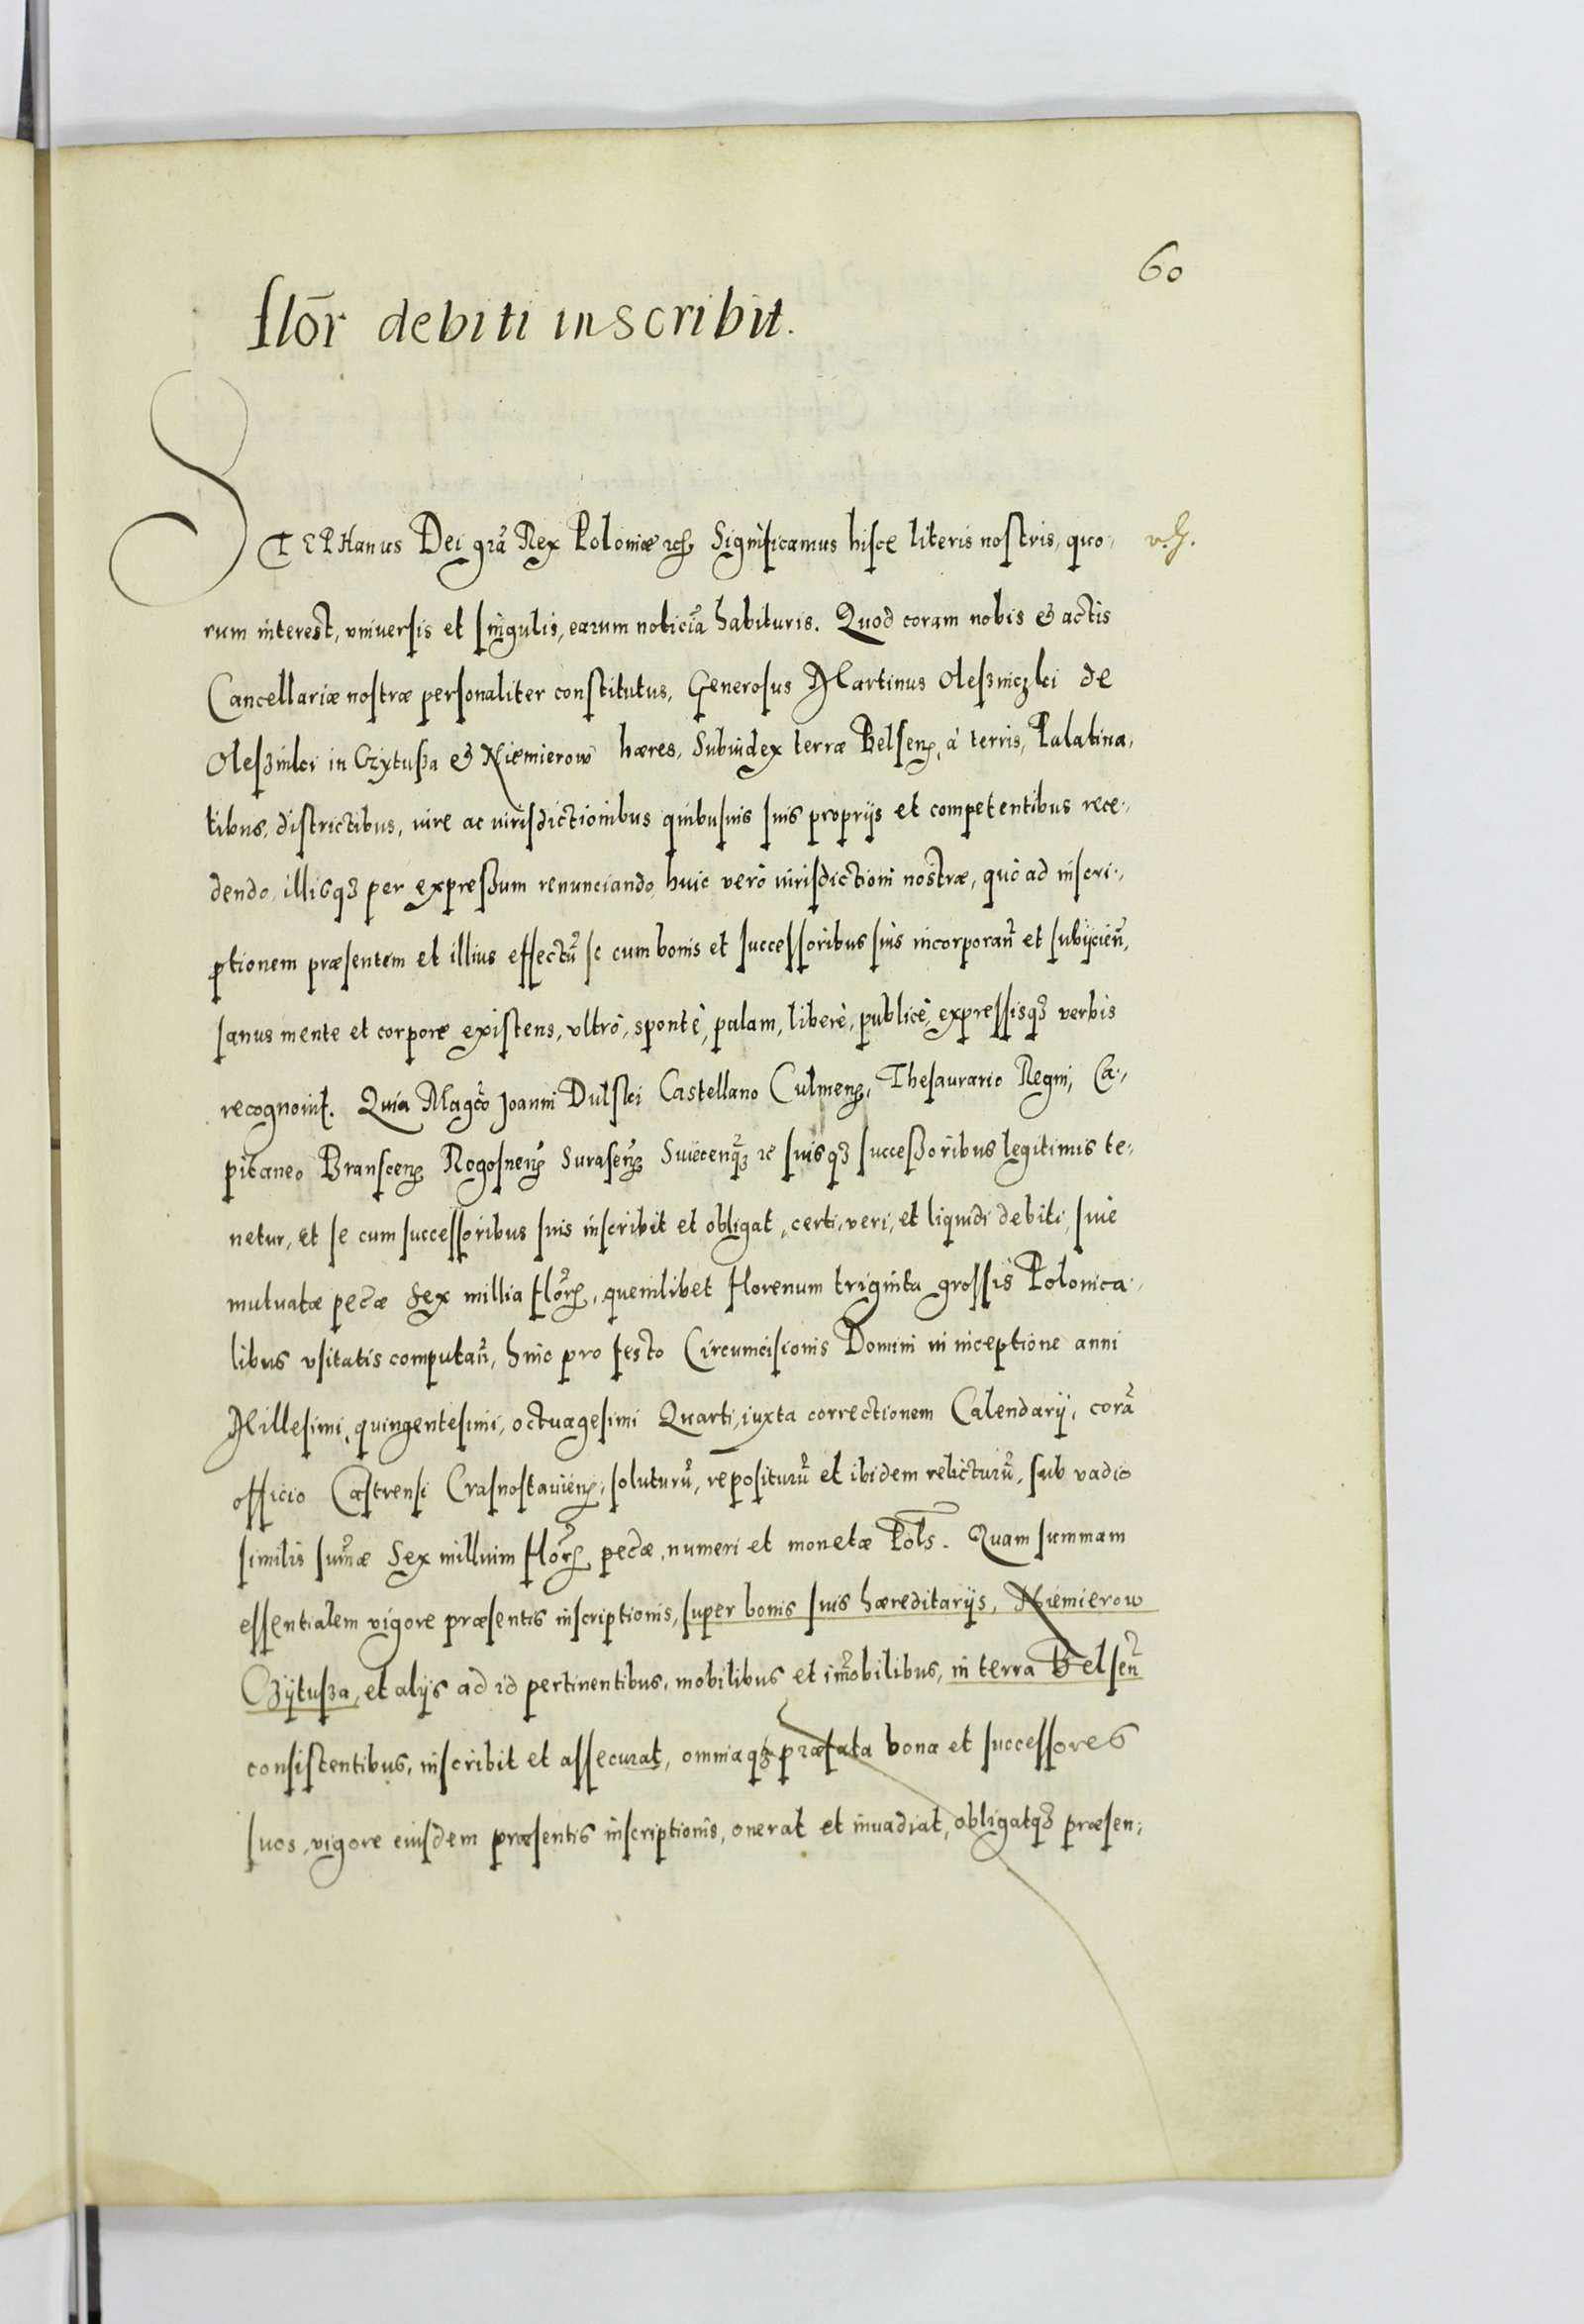 60
flōr debiti inscribit.
STEPHanus Dei grã Rex Poloniæ etc. Significamus hisce literis nostris, quo-
rum interest, vniuersis et singulis, earum noticiã habituris. Quod coram nobis & actis
Cancellariæ nostræ personaliter constitutus, Generosus Martinus Oleßniczki de
Oleßniki in Czytußa & Niemierow hæres, Subiudex terræ Belsens, à terris, Palatina-
tibus, districtibus, iure ac iurisdictionibus quibusuis suis proprijs et competentibus rece-
dendo, illisq3 per expreßum renunciando, huic verò iurisdictioni nostræ, quò ad inscri-
ptionem præsentem et illius effectũ se cum bonis et successoribus suis incorporañ et subijcieñ,
sanus mente et corpore existens, vltrò, spontè, palam, liberè, publicè, expressisq3 verbis
recognouit. Quia Magcõ Joanni Dulski Castellano Culmens, Thesaurario Regni, Ca-
pitaneo Branscens Rogosnens Surasens Suiecensq3 etc suisq3 succeßoribus legitimis te-
netur, et se cum successoribus suis inscribit et obligat, certi, veri, et liquidi debiti, siue
mutuatæ pecæ sex millia flor, quemlibet florenum triginta grossis Polonica-
libus vsitatis computañ, hinc pro festo Circumcisionis Domini in inceptione anni
Millesimi, quingentesimi, octuagesimi Quarti, iuxta correctionem Calendarij, corã
officio Castrensi Crasnostauiens, soluturũ, repositurũ et ibidem relicturũ, sub vadio
similis sum̃æ Sex millium flor pecæ, numeri et monetæ Pols. Quam summam
essentialem vigore præsentis inscriptionis, super bonis suis hæreditarijs, Niemierow
Czÿtußa, et alijs ad id pertinentibus, mobilibus et im̃obilibus, in terra Belseñ
consistentibus, inscribit et assecurat, omniaq3 præfata bona et successores
suos, vigore eiusdem præsentis inscriptionis, onerat et inuadiat, obligatq3 præsen-